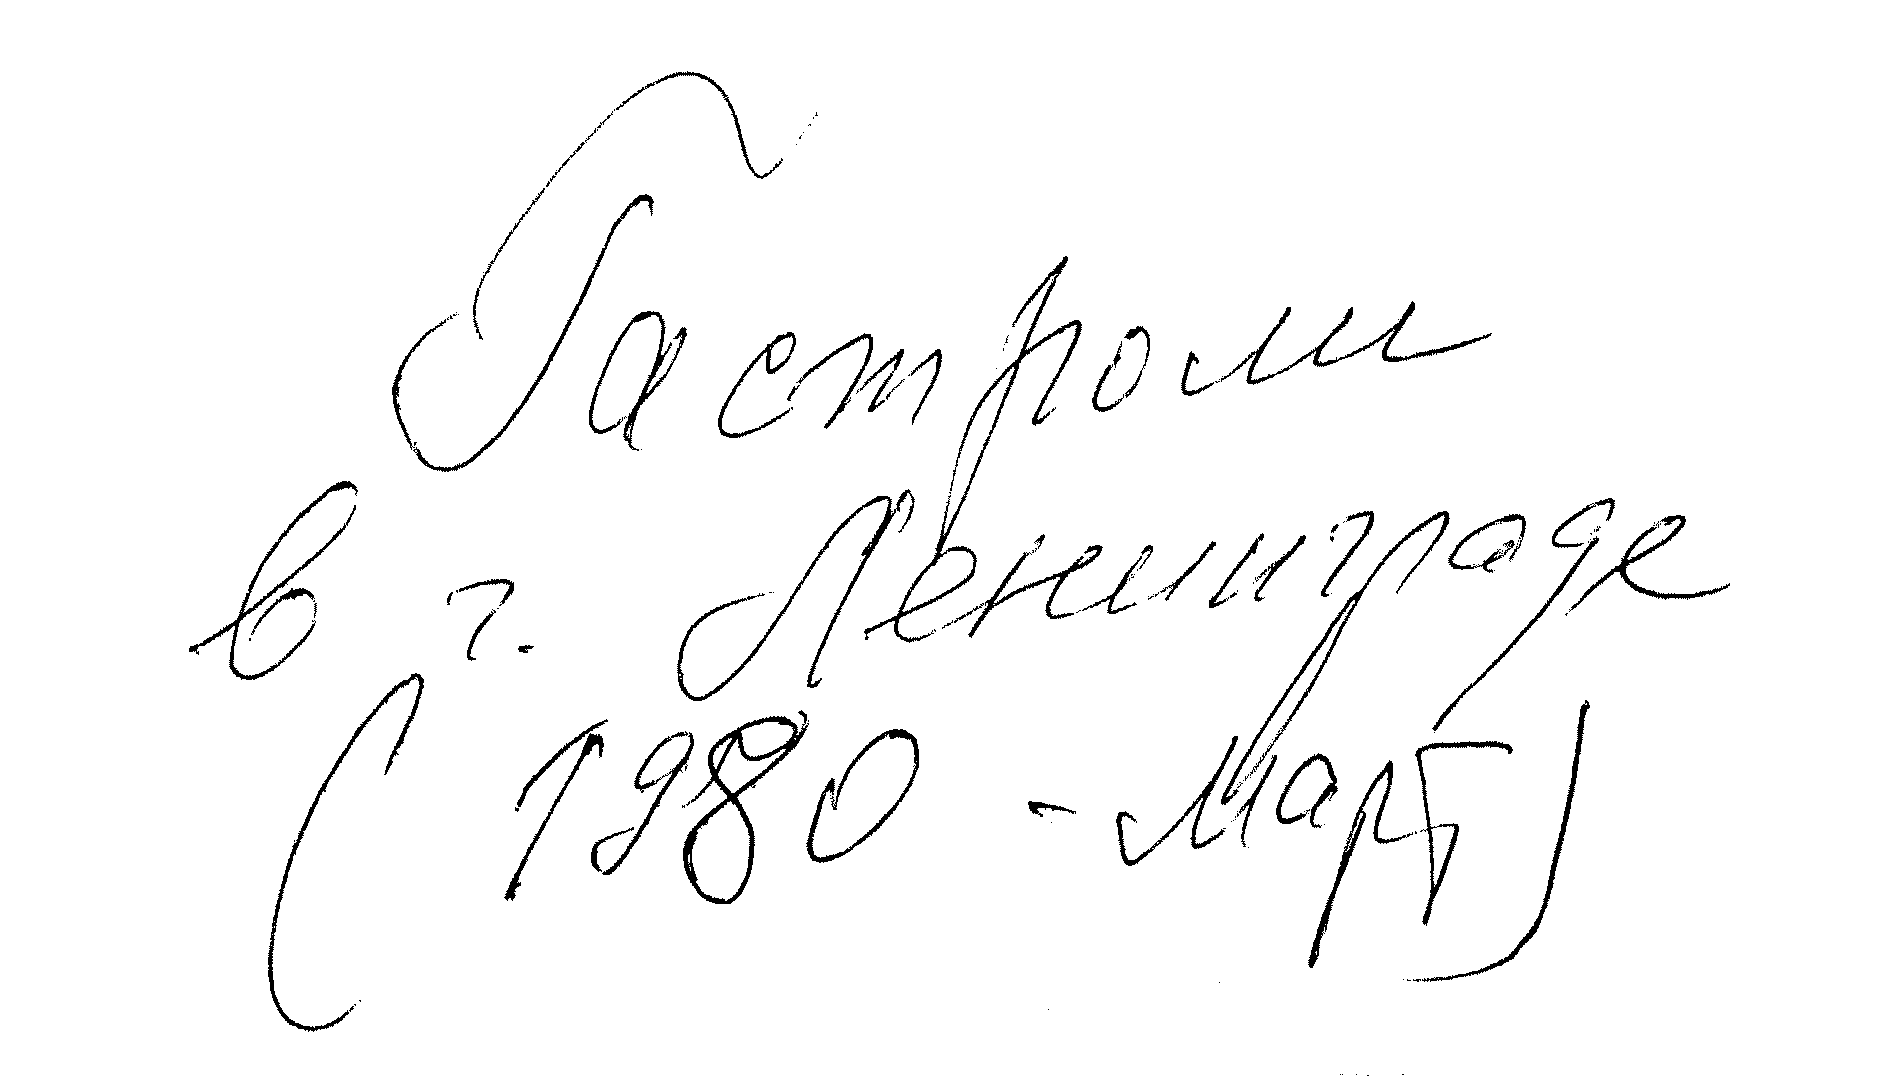 Гастроли
в г. Ленинграде
(1980 - март)